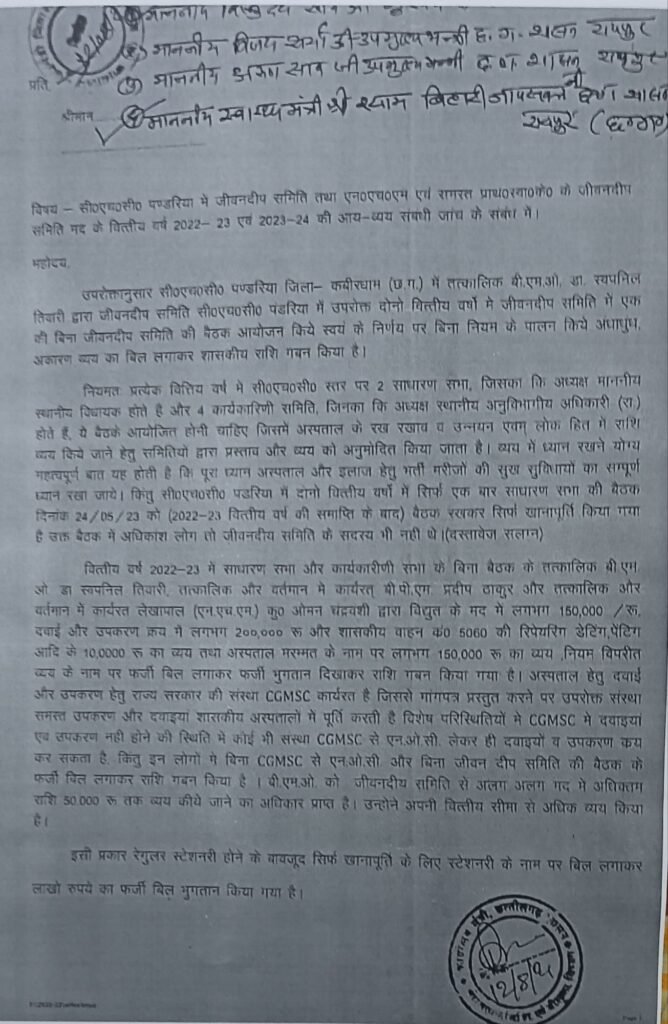 माननीय विजय शर्मा जी उपमुख्यमंत्री छ. ग. शासन रायपुर
माननीय अरुण साव जी उपमुख्यमन्त्री छ ग शासन रायपुर
प्रति,
श्रीमान
माननीय स्वास्थ्य मंत्री श्री श्याम बिहारी जायसवाल जी
रायपुर
विषय – सी0एच0सी0 पण्डरिया में जीवनदीप समिति तथा एन0एच0एम एवं समस्त प्राथ0स्वा0के0 के जीवनदीप
समिति मद के वित्तीय वर्ष 2022- 23 एवं 2023-24 की आय-व्यय संबंधी जांच के संबंध में।
महोदय,
उपरोक्तानुसार सी0एच0सी0 पण्डरिया जिला– कबीरधाम (छ.ग.) में तत्कालिक बी.एम.ओ. डा. स्वपनिल
तिवारी द्वारा जीवनदीप समिति सी0एच0सी0 पंडरिया में उपरोक्त दोनो वित्तीय वर्षो मे जीवनदीप समिति में एक
की बिना जीवनदीप समिति की बैठक आयोजन किये स्वयं के निर्णय पर बिना नियम के पालन किये अंधाधुंध,
अकारण व्यय का बिल लगाकर शासकीय राशि गबन किया है।
नियमतः प्रत्येक वित्तिय वर्ष में सी0एच0सी0 स्तर पर 2 साधारण सभा, जिसका कि अध्यक्ष माननीय
स्थानीय विधायक होते है और 4 कार्यकारिणी समिति, जिनका कि अध्यक्ष स्थानीय अनुविभागीय अधिकारी (रा.)
होते हैं, ये बैठके आयोजित होनी चाहिए जिसमें अस्पताल के रख रखाव व उन्नयन एवम् लोक हित में राशि
व्यय किये जाने हेतु समितियों द्वारा प्रस्ताव और व्यय को अनुमोदित किया जाता है। व्यय में ध्यान रखने योग्य
महत्वपूर्ण बात यह होती है कि पूरा ध्यान अस्पताल और इलाज हेतु भर्ती मरीजों की सुख सुविधायों का सम्पूर्ण
ध्यान रखा जाये। किंतु सी0एच0सी0 पंडरिया में दोनो वित्तीय वर्षो में सिर्फ एक बार साधारण सभा की बैठक
दिनांक 24/05/23 को (2022-23 वित्तीय वर्ष की समाप्ति के बाद) बैठक रखकर सिर्फ खानापूर्ति किया गया
है उक्त बैठक में अधिकांश लोग तो जीवनदीय समिति के सदस्य भी नही थे।(दस्तावेज सलाग्न)
वित्तीय वर्ष 2022-23 में साधारण सभा और कार्यकारीणी सभा के बिना बैठक के तत्कालिक बी एम.
ओ. डा स्वपनिल तिवारी, तत्कालिक और वर्तमान मे कार्यरत् बी.पी.एम. प्रदीप ठाकुर और तत्कालिक और
वर्तमान में कार्यरत लेखापाल (एन.एच.एम.) कु0 ओमन चंद्रवंशी द्वारा विद्युत के मद में लगभग 150,000 /रू,
दवाई और उपकरण क्रय में लगभग 200,000 रू और शासकीय वाहन क0 5060 की रिपेयरिंग डेटिंग,पेंटिंग
आदि के 10,0000 रू का व्यय तथा अस्पताल मरम्मत के नाम पर लगभग 150,000 रू का व्यय ,नियम विपरीत
व्यय के नाम पर फर्जी बिल लगाकर फर्जी भुगतान दिखाकर राशि गबन किया गया है। अस्पताल हेतु दवाई
और उपकरण हेतु राज्य सरकार की संस्था CGMSC कार्यरत है जिससे मांगपत्र प्रस्तुत करने पर उपरोक्त संस्था
समस्त उपकरण और दवाइयां शासकीय अस्पतालों में पूर्ति करती है विशेष परिस्थितियों मे CGMSC मे दवाइयां
एवं उपकरण नही होने की स्थिति मे कोई भी संस्था CGMSC से एन.ओ.सी. लेकर ही दवाइयों व उपकरण क्रय
कर सकता है. किंतु इन लोगों ने बिना CGMSC से एन.ओ.सी. और बिना जीवन दीप समिति की बैठक के
फर्जी बिल लगाकर राशि गबन किया है । बी.एम.ओ. को जीवनदीय समिति से अलग अलग मद मे अधिक्तम
राशि 50,000 रू तक व्यय कीये जाने का अधिकार प्राप्त है। उन्होने अपनी वित्तीय सीमा से अधिक व्यय किया
है।
इसी प्रकार रेगुलर स्टेशनरी होने के बावजूद सिर्फ खानापूर्ति के लिए स्टेशनरी के नाम पर बिल लगाकर
लाखो रुपये का फर्जी बिल भुगतान किया गया है।
12/8/24
Page 1